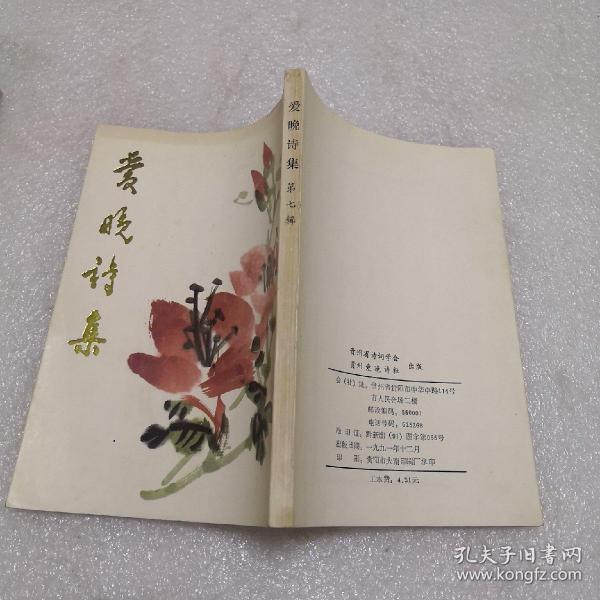 爱晚诗集
爱晚诗集 第七辑
贵州省诗词学会
贵州爱晚诗社 出版
会(社)址:贵州省贵阳市中华中路114号
市人民会场二楼
邮政编码:550001
电话号码:
准印证:黔新出(91)图字第055号
出版日期:一九九一年十二月
印 刷:
工本费:4.51元
孔夫子旧书网
www.kongfz.com